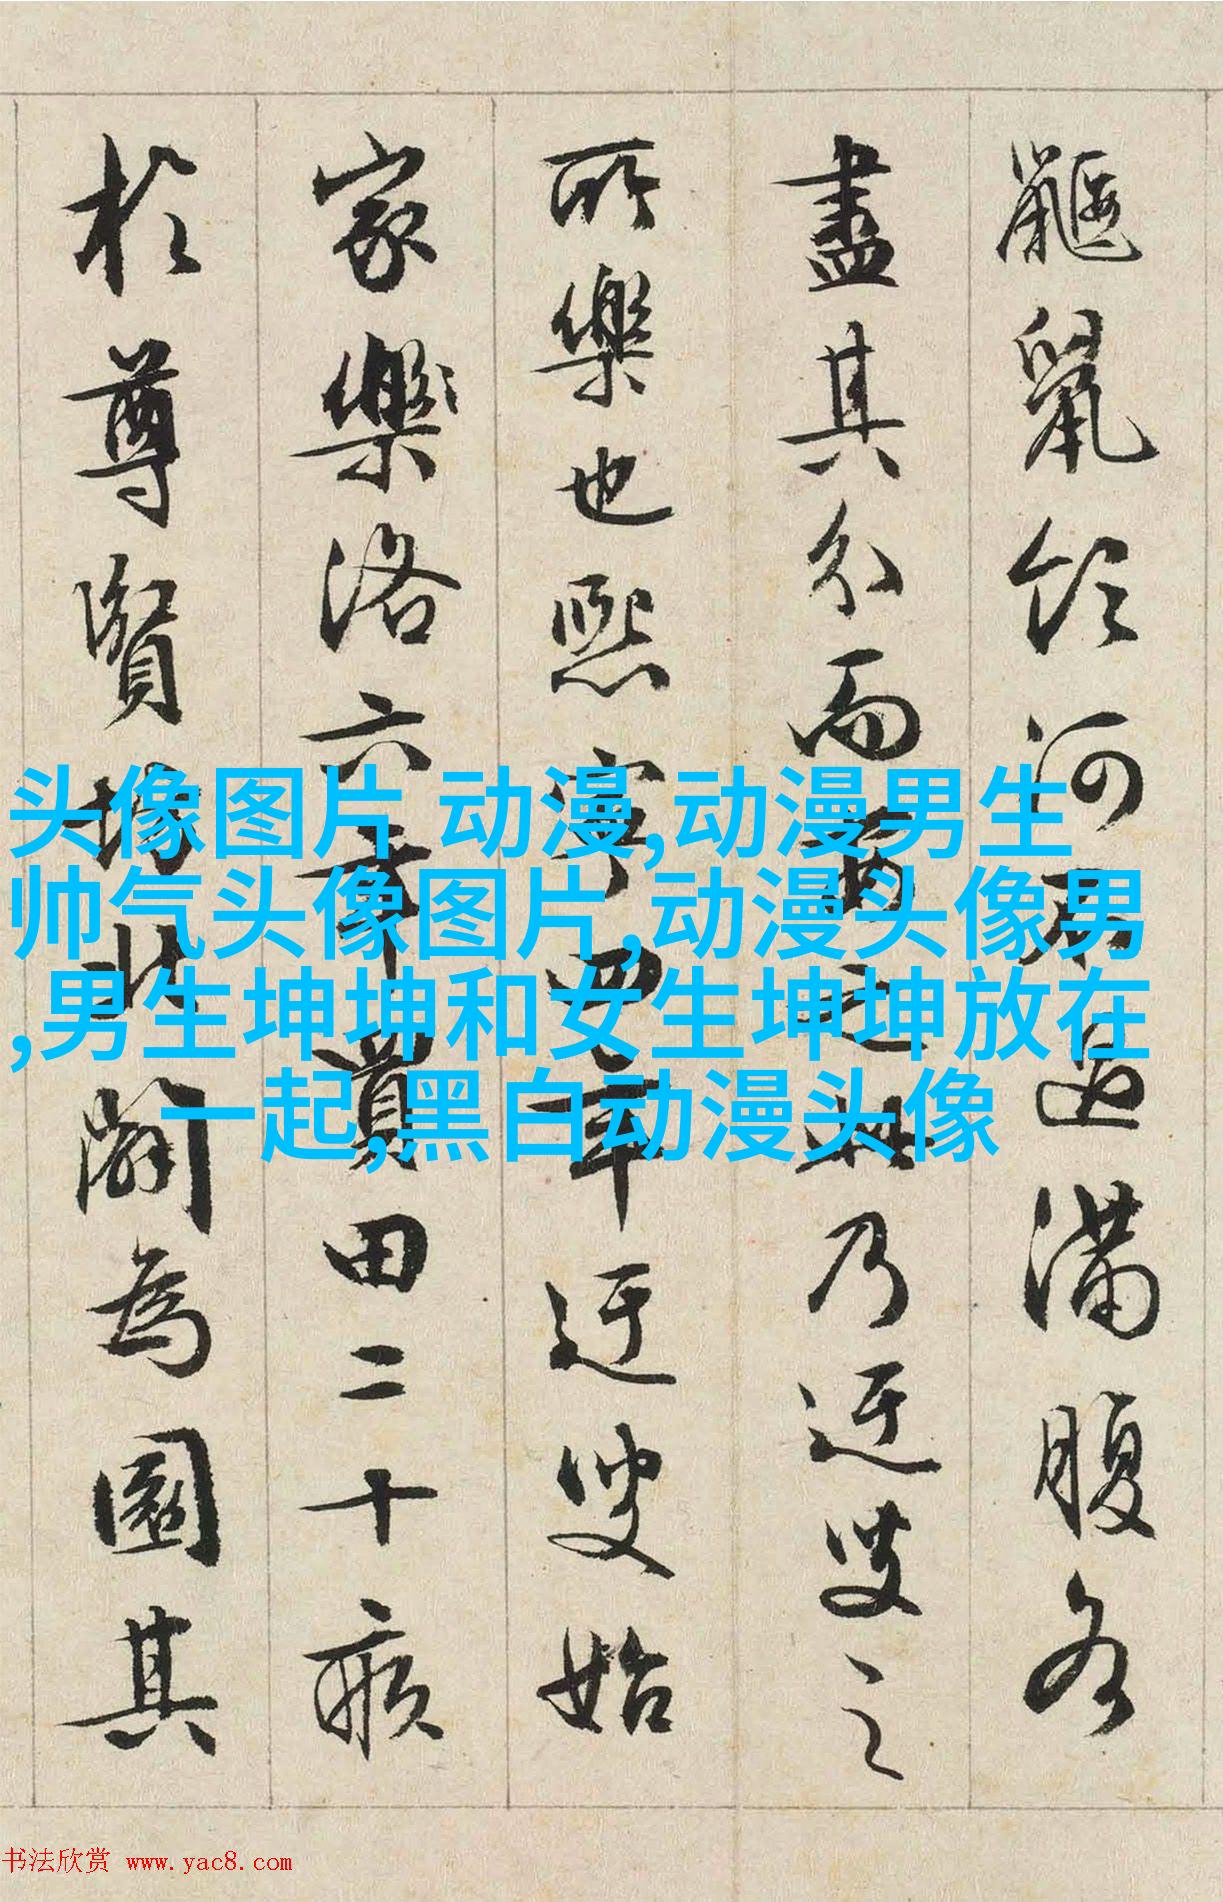 鼴鼠飲河不過滿腹各
盡其分而安之此乃迂叟之
所樂也熙寧四年迂叟始
家樂洛六年買田二十畝
於尊賢坊北闢為園其
头像图片 动漫,动漫男生
帅气头像图片,动漫头像男
,男生坤坤和女生坤坤放在
一起,黑白动漫头像
书法欣赏 www.yac8.com